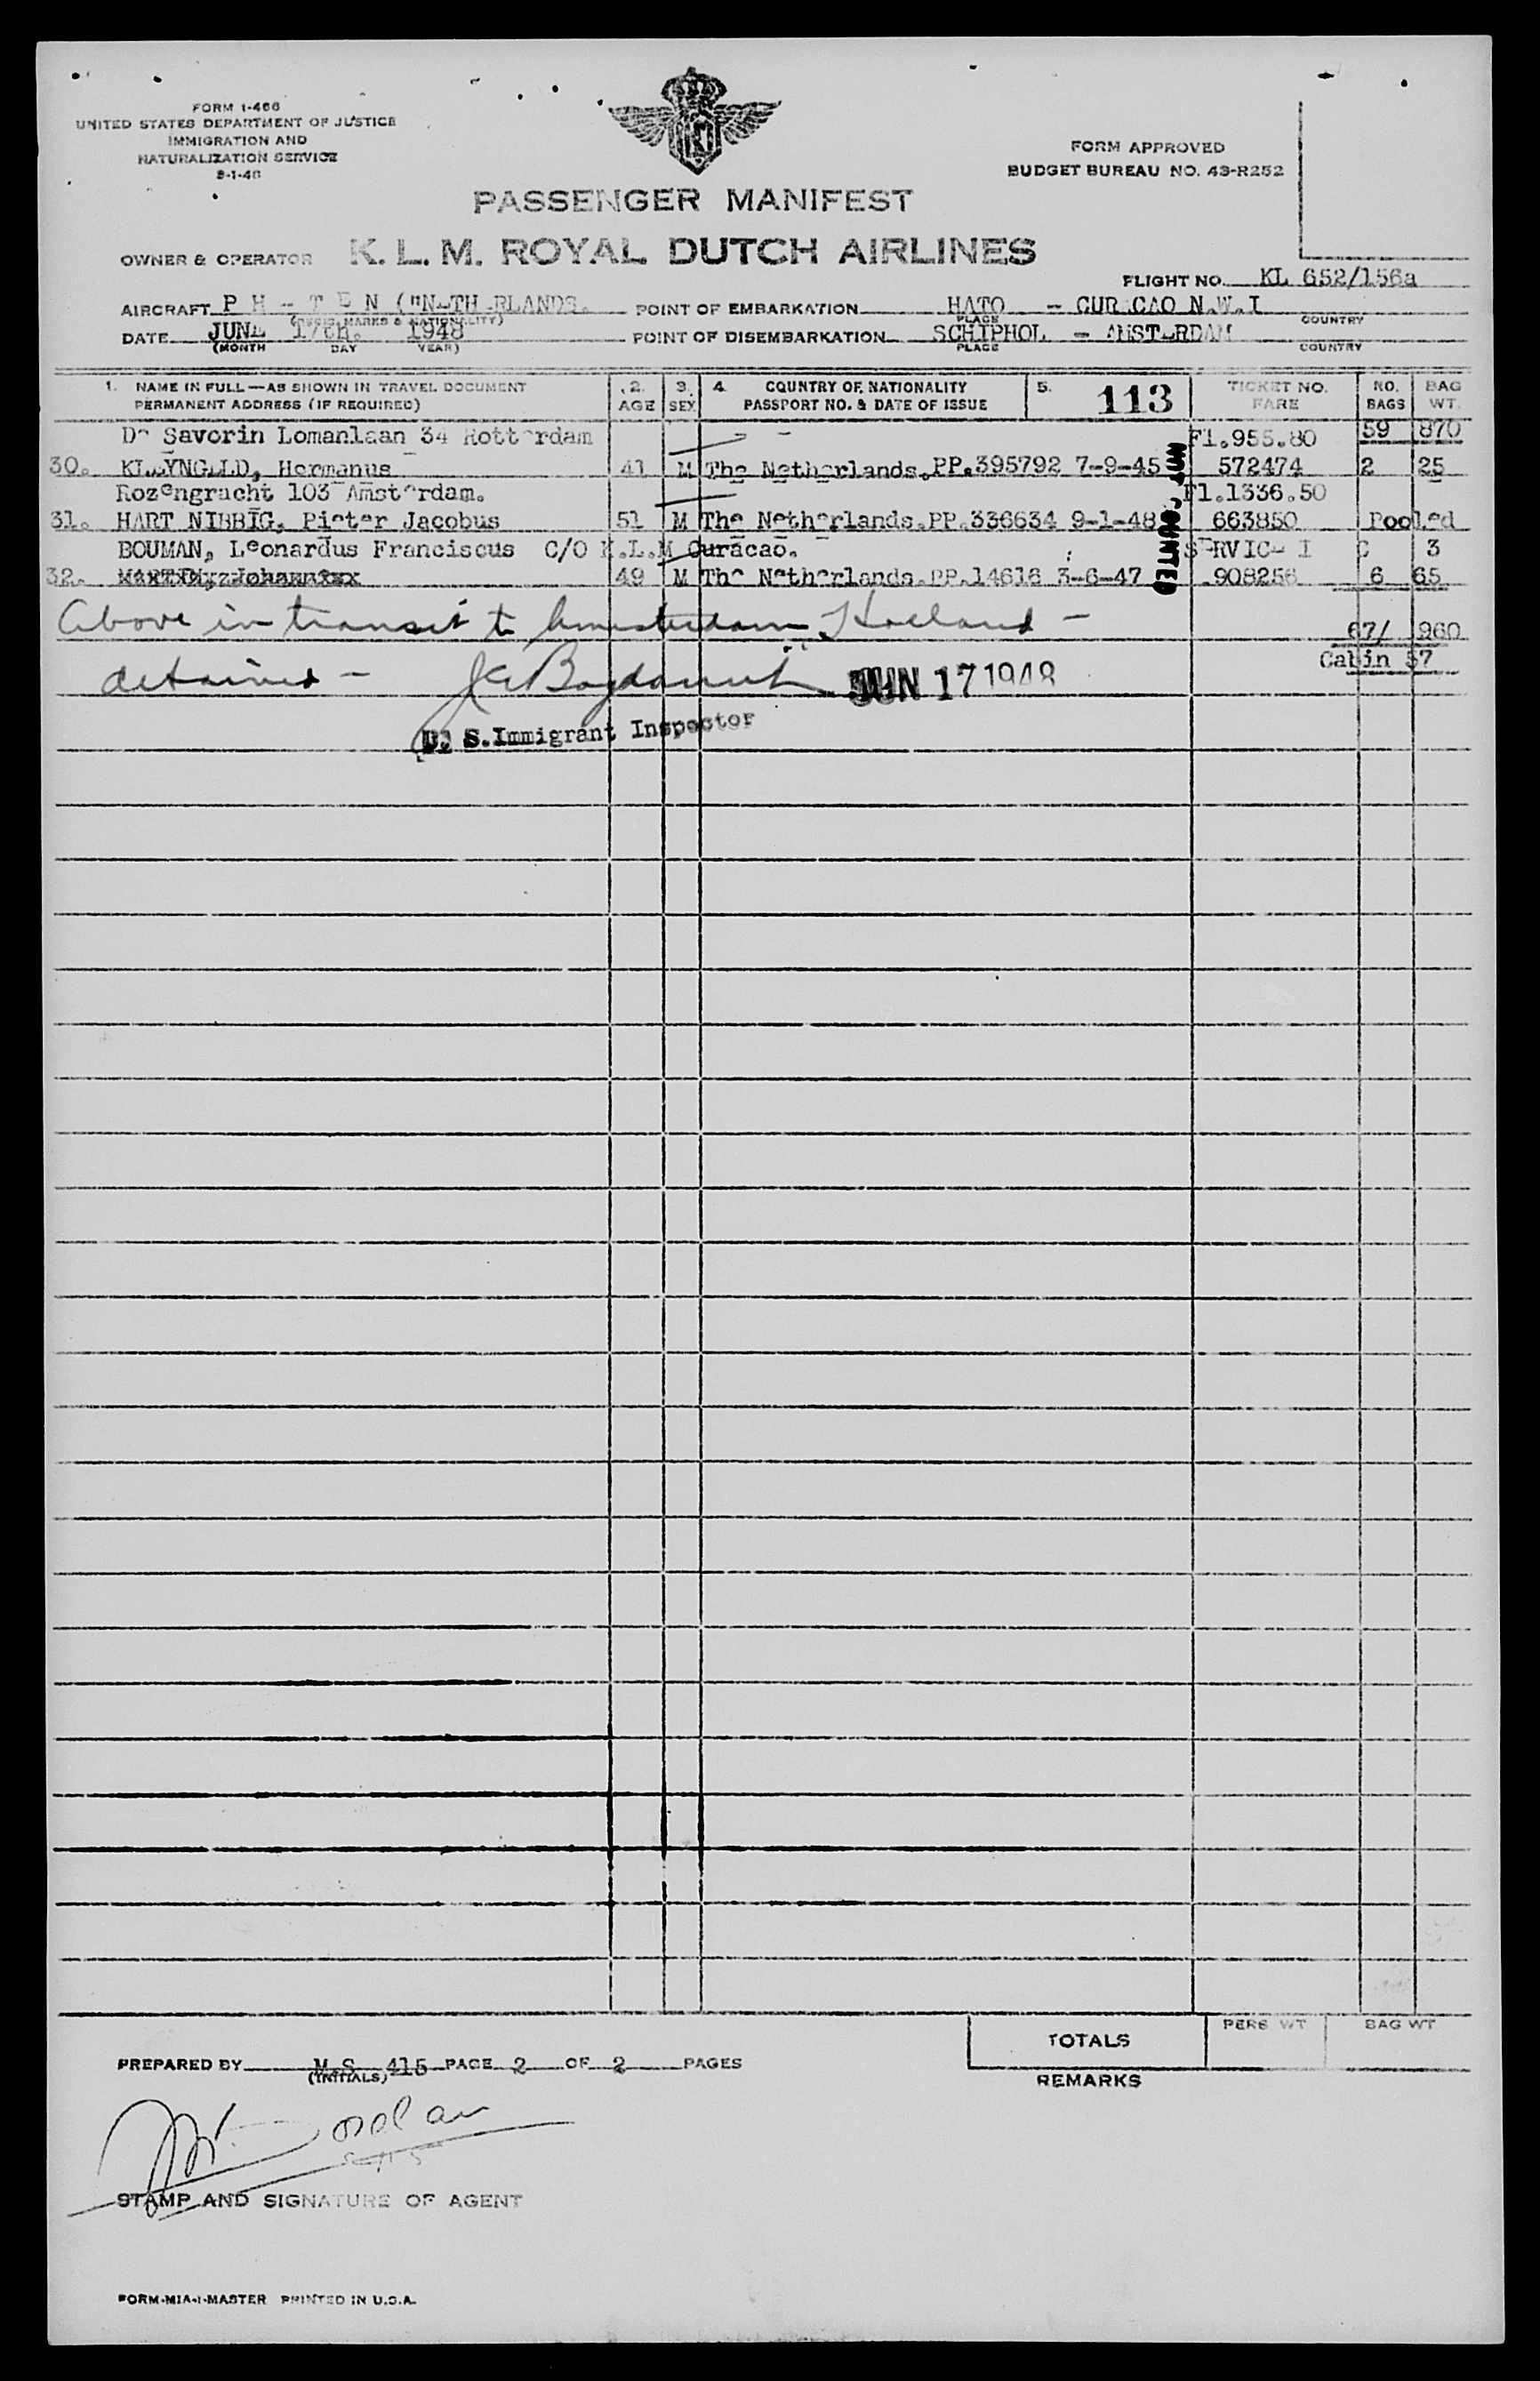 FORM I-466
UNITED STATES DEPARTMENT OF JUSTICE
IMMIGRATION AND
NATURALIZATION SERVICE
FORM APPROVED
BUDGET BUREAU NO. 43-R252
PASSENGER MANIFEST
OWNER & OPERATOR K. L. M. ROYAL DUTCH AIRLINES
FLIGHT NO. KL 652/156a
AIRCRAFT P H - T E N (NETHERLANDS. POINT OF EMBARKATION HATO - CURACAO N.W.I
(REGIS. MARKS & NATIONALITY) PLACE COUNTRY
DATE JUNE 17th. 1948 POINT OF DISEMBARKATION SCHIPHOL - AMSTERDAM
(MONTH DAY YEAR) PLACE COUNTRY
1. NAME IN FULL—AS SHOWN IN TRAVEL DOCUMENT 2. 3. 4 COUNTRY OF NATIONALITY 5. 113 TICKET NO. NO. BAG
PERMANENT ADDRESS (IF REQUIRED) AGE SEX PASSPORT NO. & DATE OF ISSUE FARE BAGS WT.
De Savorin Lomanlaan 34 Rotterdam Fl.955.80 59 870
30. KLEYNGELD, Hermanus 41 M The Netherlands.PP.395792 7-9-45 572474 2 25
Rozengracht 103 Amsterdam. Fl.1336.50
31. HART NIBBIG, Pieter Jacobus 51 M The Netherlands.PP.336634 9-1-48 663850 Pooled
NOT COUNTED
BOUMAN, Leonardus Franciscus C/O K.L.M Curacao. SERVICE I C 3
32. 49 M The Netherlands.PP.14618 3-6-47 908256 6 65
Above in transit to Amsterdam Holland - 67/ 960
Cabin 57
detained - JUN 17 1948
U. S. Immigrant Inspector
TOTALS PERS WT BAG WT
PREPARED BY M.S 415 PAGE 2 OF 2 PAGES
(INITIALS)
REMARKS
STAMP AND SIGNATURE OF AGENT
FORM-MIA-1-MASTER PRINTED IN U.S.A.